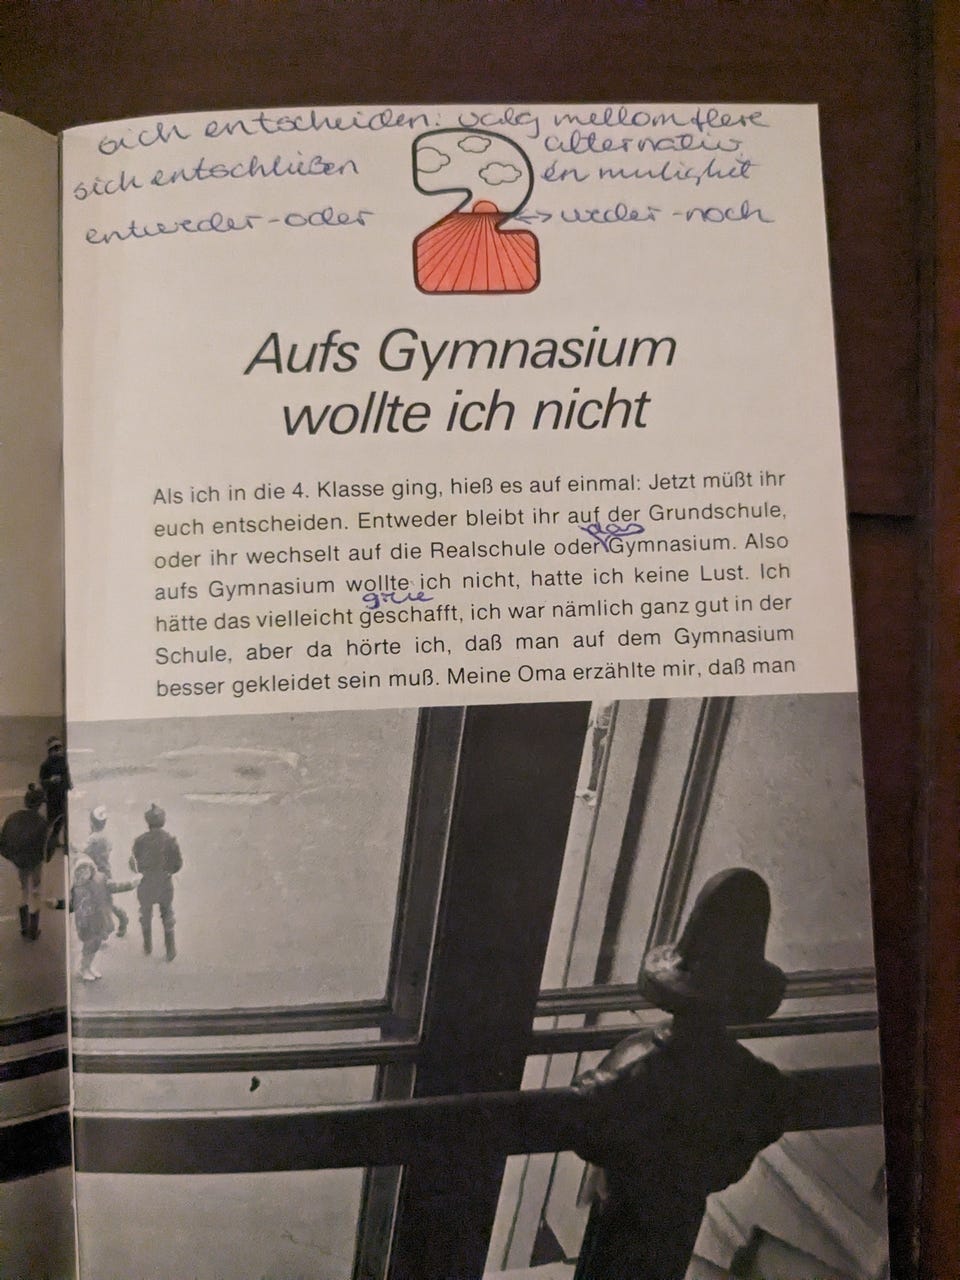 sich entscheiden: valg mellom flere
alternativ
sich entschlüßen én mulighet
entweder-oder <-> weder-noch
2
Aufs Gymnasium
wollte ich nicht
Als ich in die 4. Klasse ging, hieß es auf einmal: Jetzt müßt ihr
euch entscheiden. Entweder bleibt ihr auf der Grundschule,
das
oder ihr wechselt auf die Realschule oder Gymnasium. Also
aufs Gymnasium wollte ich nicht, hatte ich keine Lust. Ich
greie
hätte das vielleicht geschafft, ich war nämlich ganz gut in der
Schule, aber da hörte ich, daß man auf dem Gymnasium
besser gekleidet sein muß. Meine Oma erzählte mir, daß man